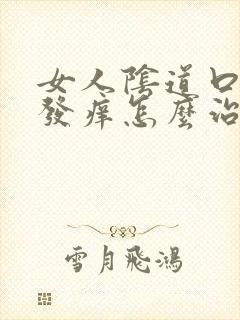 女人陰道口
發癢怎麼治
雪月飛鴻